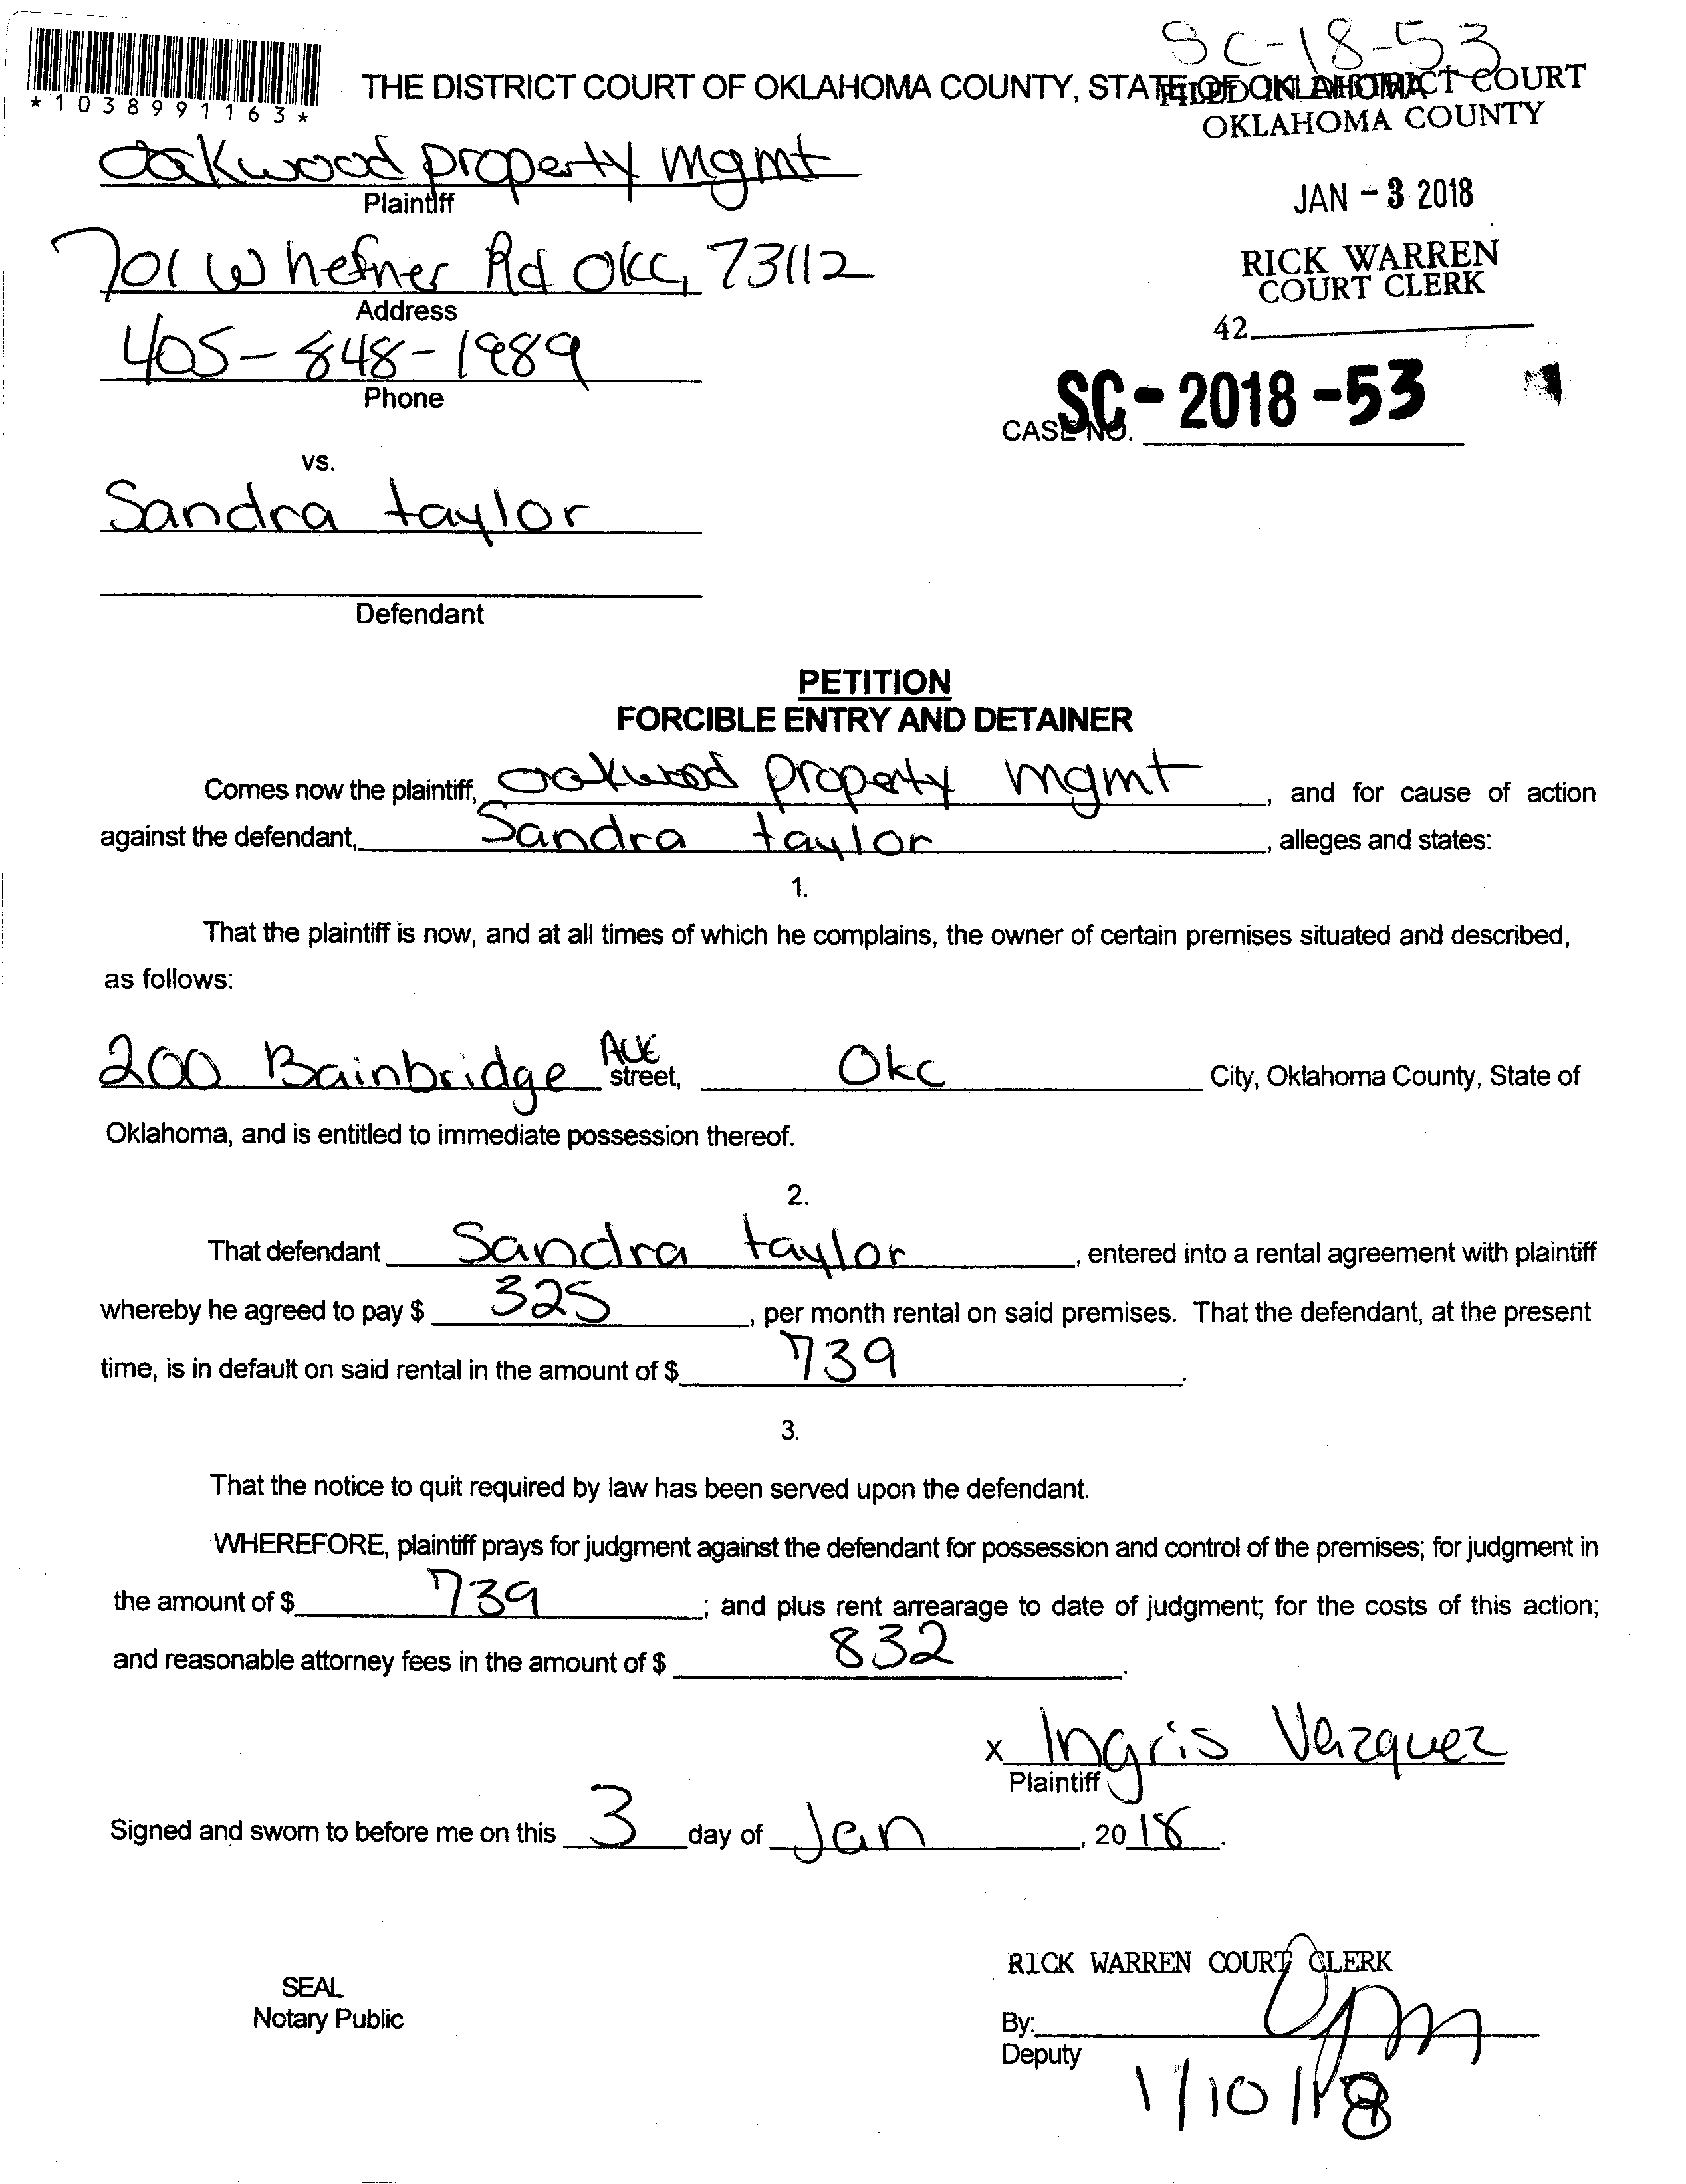 SC-18-53
*1038991163*
THE DISTRICT COURT OF OKLAHOMA COUNTY, STATE OF OKLAHOMA
FILED IN DISTRICT COURT
OKLAHOMA COUNTY
JAN - 3 2018
RICK WARREN
COURT CLERK
42
Oakwood property mgmt
Plaintiff
701 W hefner Rd OKC, 73112
Address
405-848-1989
Phone
CASE NO. SC-2018-53
vs.
Sandra taylor
Defendant
PETITION
FORCIBLE ENTRY AND DETAINER
Comes now the plaintiff, oakwood property mgmt, and for cause of action
against the defendant, Sandra taylor, alleges and states:
1.
That the plaintiff is now, and at all times of which he complains, the owner of certain premises situated and described,
as follows:
200 Bainbridge Ave street, Okc City, Oklahoma County, State of
Oklahoma, and is entitled to immediate possession thereof.
2.
That defendant Sandra taylor, entered into a rental agreement with plaintiff
whereby he agreed to pay $ 325, per month rental on said premises. That the defendant, at the present
time, is in default on said rental in the amount of $ 739.
3.
That the notice to quit required by law has been served upon the defendant.
WHEREFORE, plaintiff prays for judgment against the defendant for possession and control of the premises; for judgment in
the amount of $ 739; and plus rent arrearage to date of judgment; for the costs of this action;
and reasonable attorney fees in the amount of $ 832.
x Ingris Vazquez
Plaintiff
Signed and sworn to before me on this 3 day of Jan, 2018.
RICK WARREN COURT CLERK
SEAL
Notary Public
By:
Deputy
1/10/18